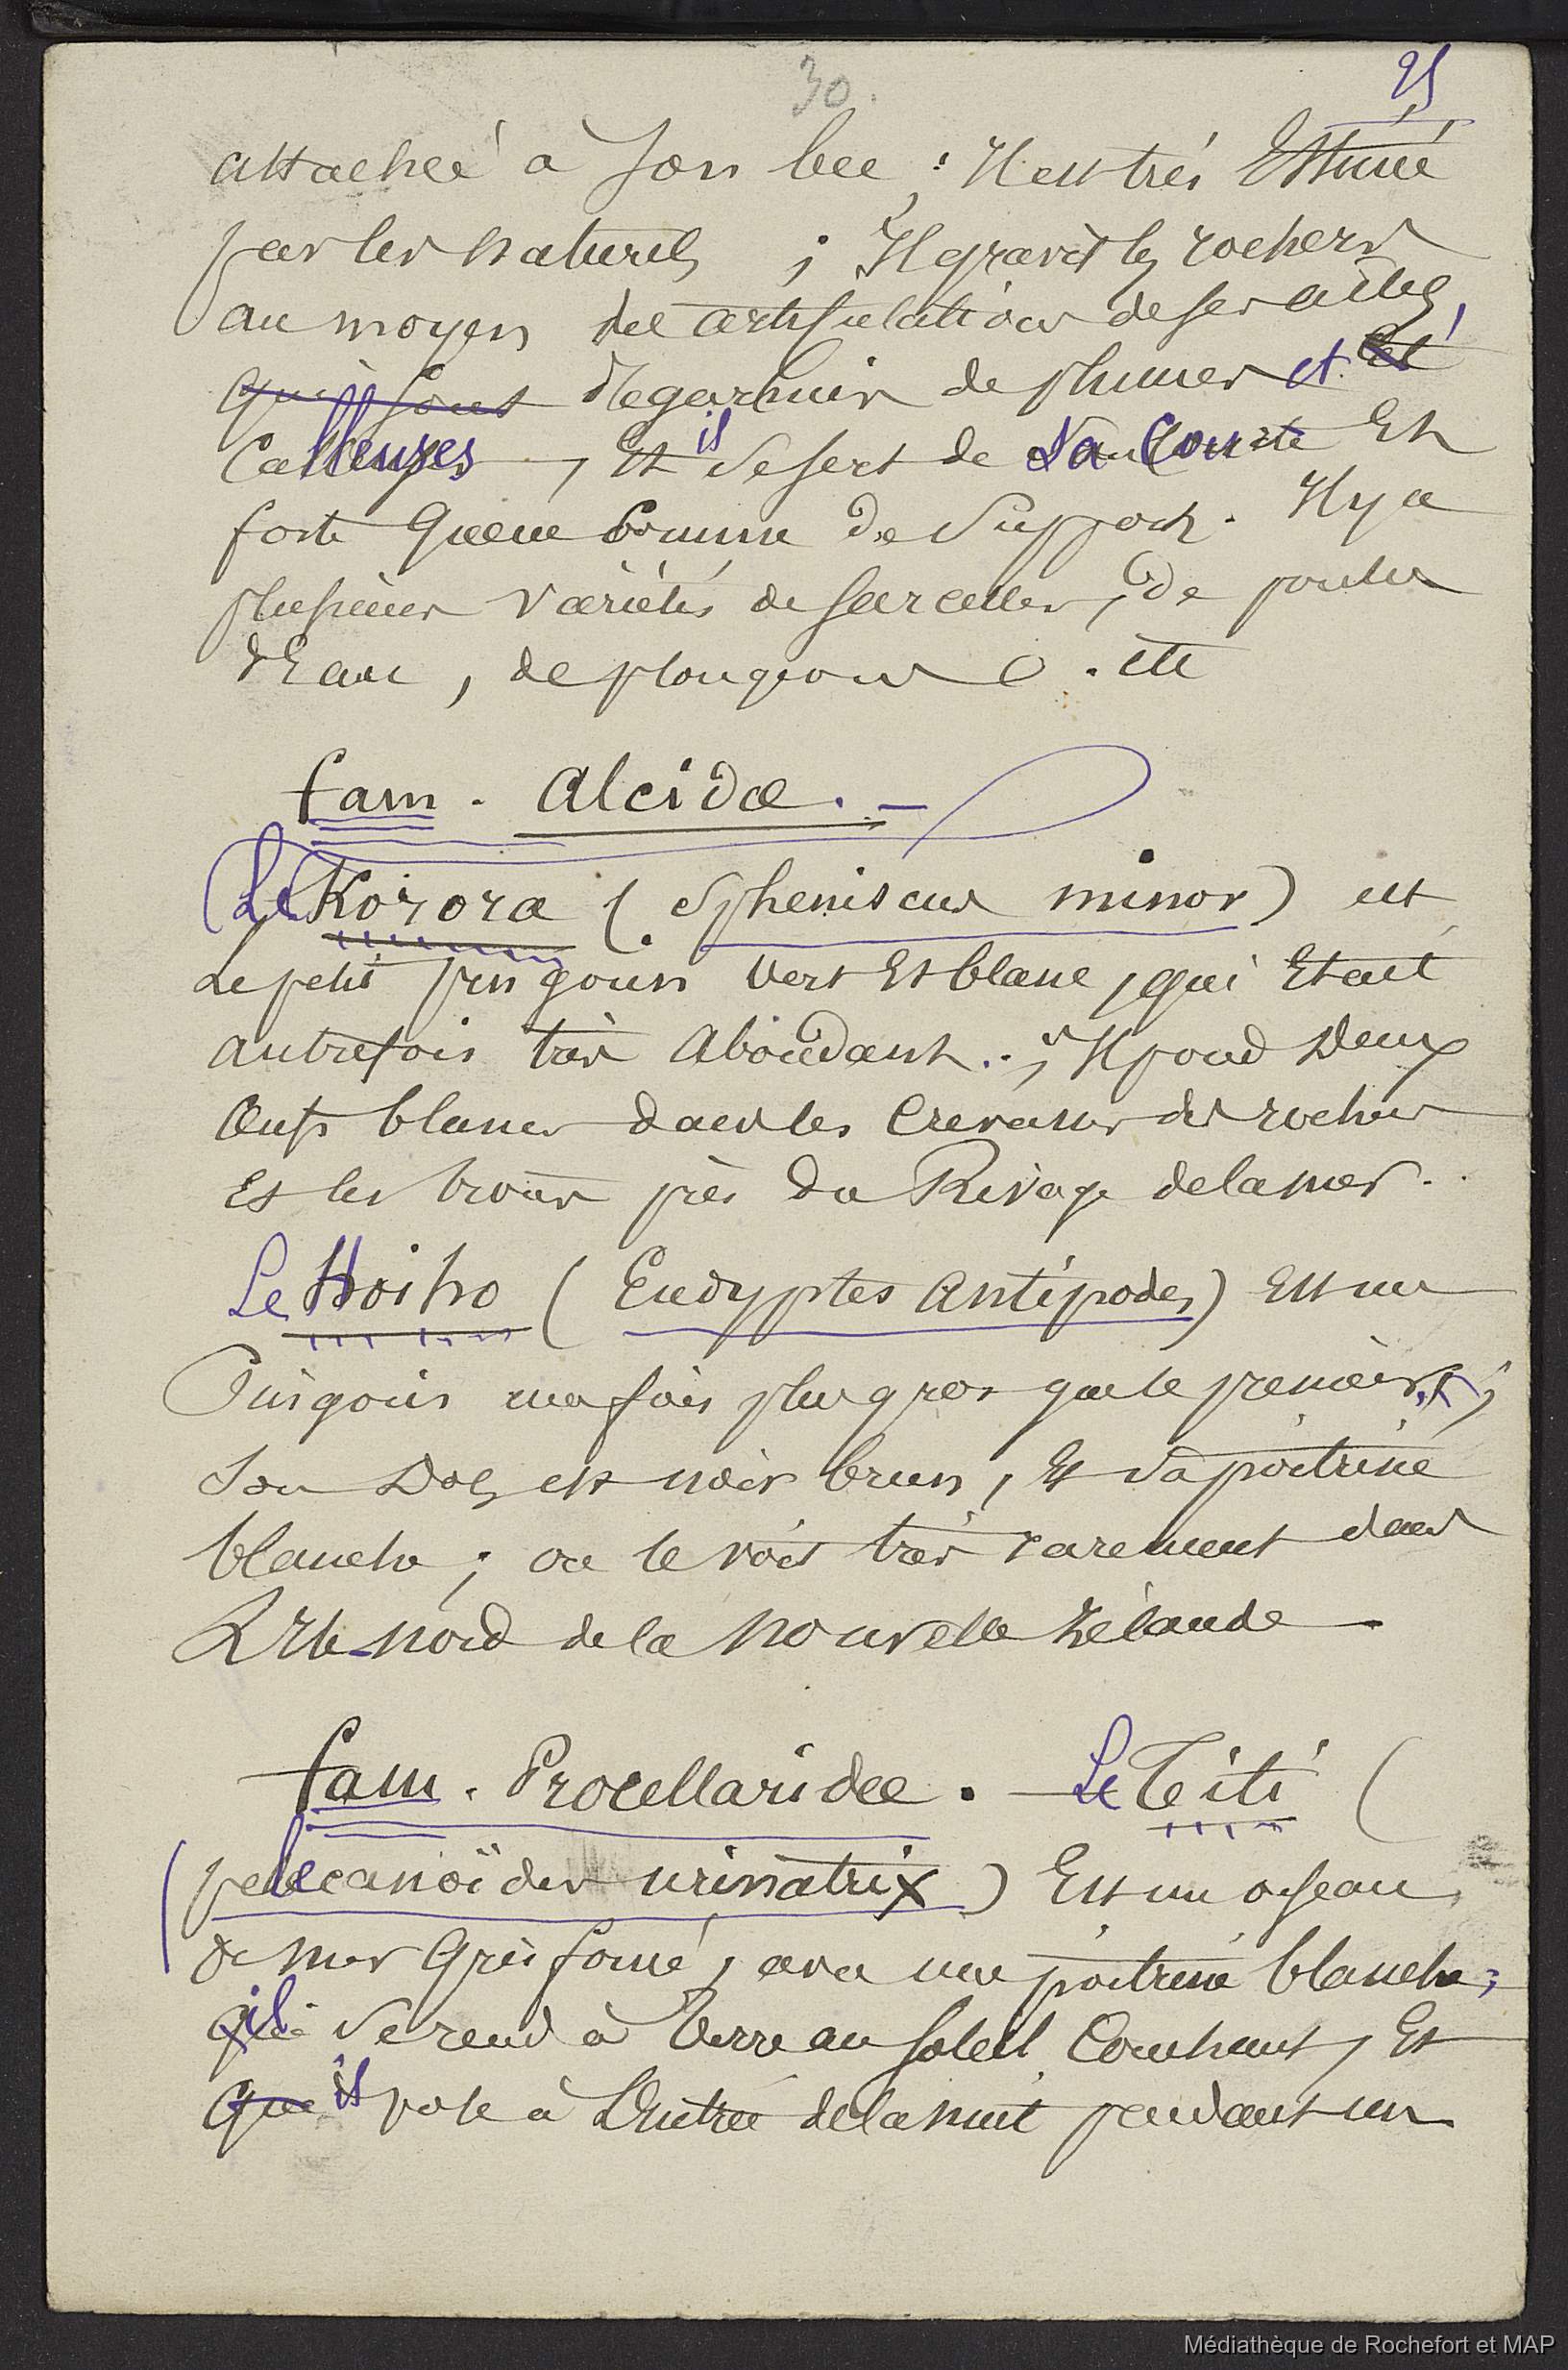 30.
25
attachée à son bec ; Il est très Estimé
par les naturels ; Il gravit les rochers
au moyen des articulations de ses ailes,
qui sont dégarnies de plumes et
Calleuses, Et il se sert de sa Courte Et
forte Queue Comme de Support. Il y a
plusieurs variétés de sarcelles, de poules
d'Eau, de plongeons &. etc
fam. Alcidæ. —
(Le Korora (Spheniscus minor) est
Le petit pingouin vert Et blanc, qui Etait
autrefois très Abondant.. ; Il pond Deux
Œufs blancs dans les Crevasses des rochers
Et les trous près du Rivage de la mer.
Le Hoiho (Eudyptes antipodes) Est un
Pingouin une fois plus gros que le premier ;
Son Dos est noir brun, Et Sa poitrine
blanche ; on le voit très rarement dans
L'Ile-nord de la Nouvelle Zélande.
fam. Procellaridæ. — Le Titi (
(pelecanoïdes urinatrix) Est un oiseau
de mer Gris foncé, avec une poitrine blanche ;
il Se rend à Terre au soleil Couchant, Et
Que il vole à L'Entrée de la nuit pendant un
Médiathèque de Rochefort et MAP